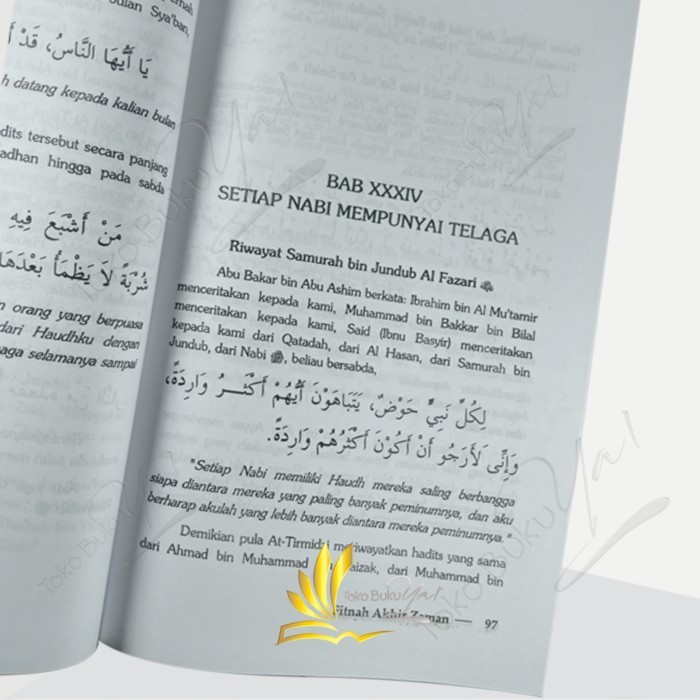 bulan Sya'ban,
يَا أَيُّهَا النَّاسُ، قَدْ أَ
h datang kepada kalian bulan
dits tersebut secara panjang
adhan hingga pada sabda
مَنْ أَشْبَعَ فِيهِ
شُرْبَةً لَا يَظْمَأُ بَعْدَهَا
n orang yang berpuasa
dari Haudhku dengan
aga selamanya sampai
BAB XXXIV
SETIAP NABI MEMPUNYAI TELAGA
Riwayat Samurah bin Jundub Al Fazari
Abu Bakar bin Abu Ashim berkata: Ibrahim bin Al Mu'tamir
menceritakan kepada kami, Muhammad bin Bakkar bin Bilal
menceritakan kepada kami, Said (Ibnu Basyir) menceritakan
kepada kami dari Qatadah, dari Al Hasan, dari Samurah bin
Jundub, dari Nabi ﷺ, beliau bersabda,
لِكُلِّ نَبِيٍّ حَوْضٌ، يَتَبَاهَوْنَ أَيُّهُمْ أَكْثَرُ وَارِدَةً،
وَإِنِّى لَأَرْجُو أَنْ أَكُوْنَ أَكْثَرُهُمْ وَارِدَةً.
"Setiap Nabi memiliki Haudh mereka saling berbangga
siapa diantara mereka yang paling banyak peminumnya, dan aku
berharap akulah yang lebih banyak diantara mereka peminumnya."
Demikian pula At-Tirmidzi meriwayatkan hadits yang sama
dari Ahmad bin Muhammad aizak, dari Muhammad bin
Fitnah Akhir Zaman — 97
Toko Buku Ya!